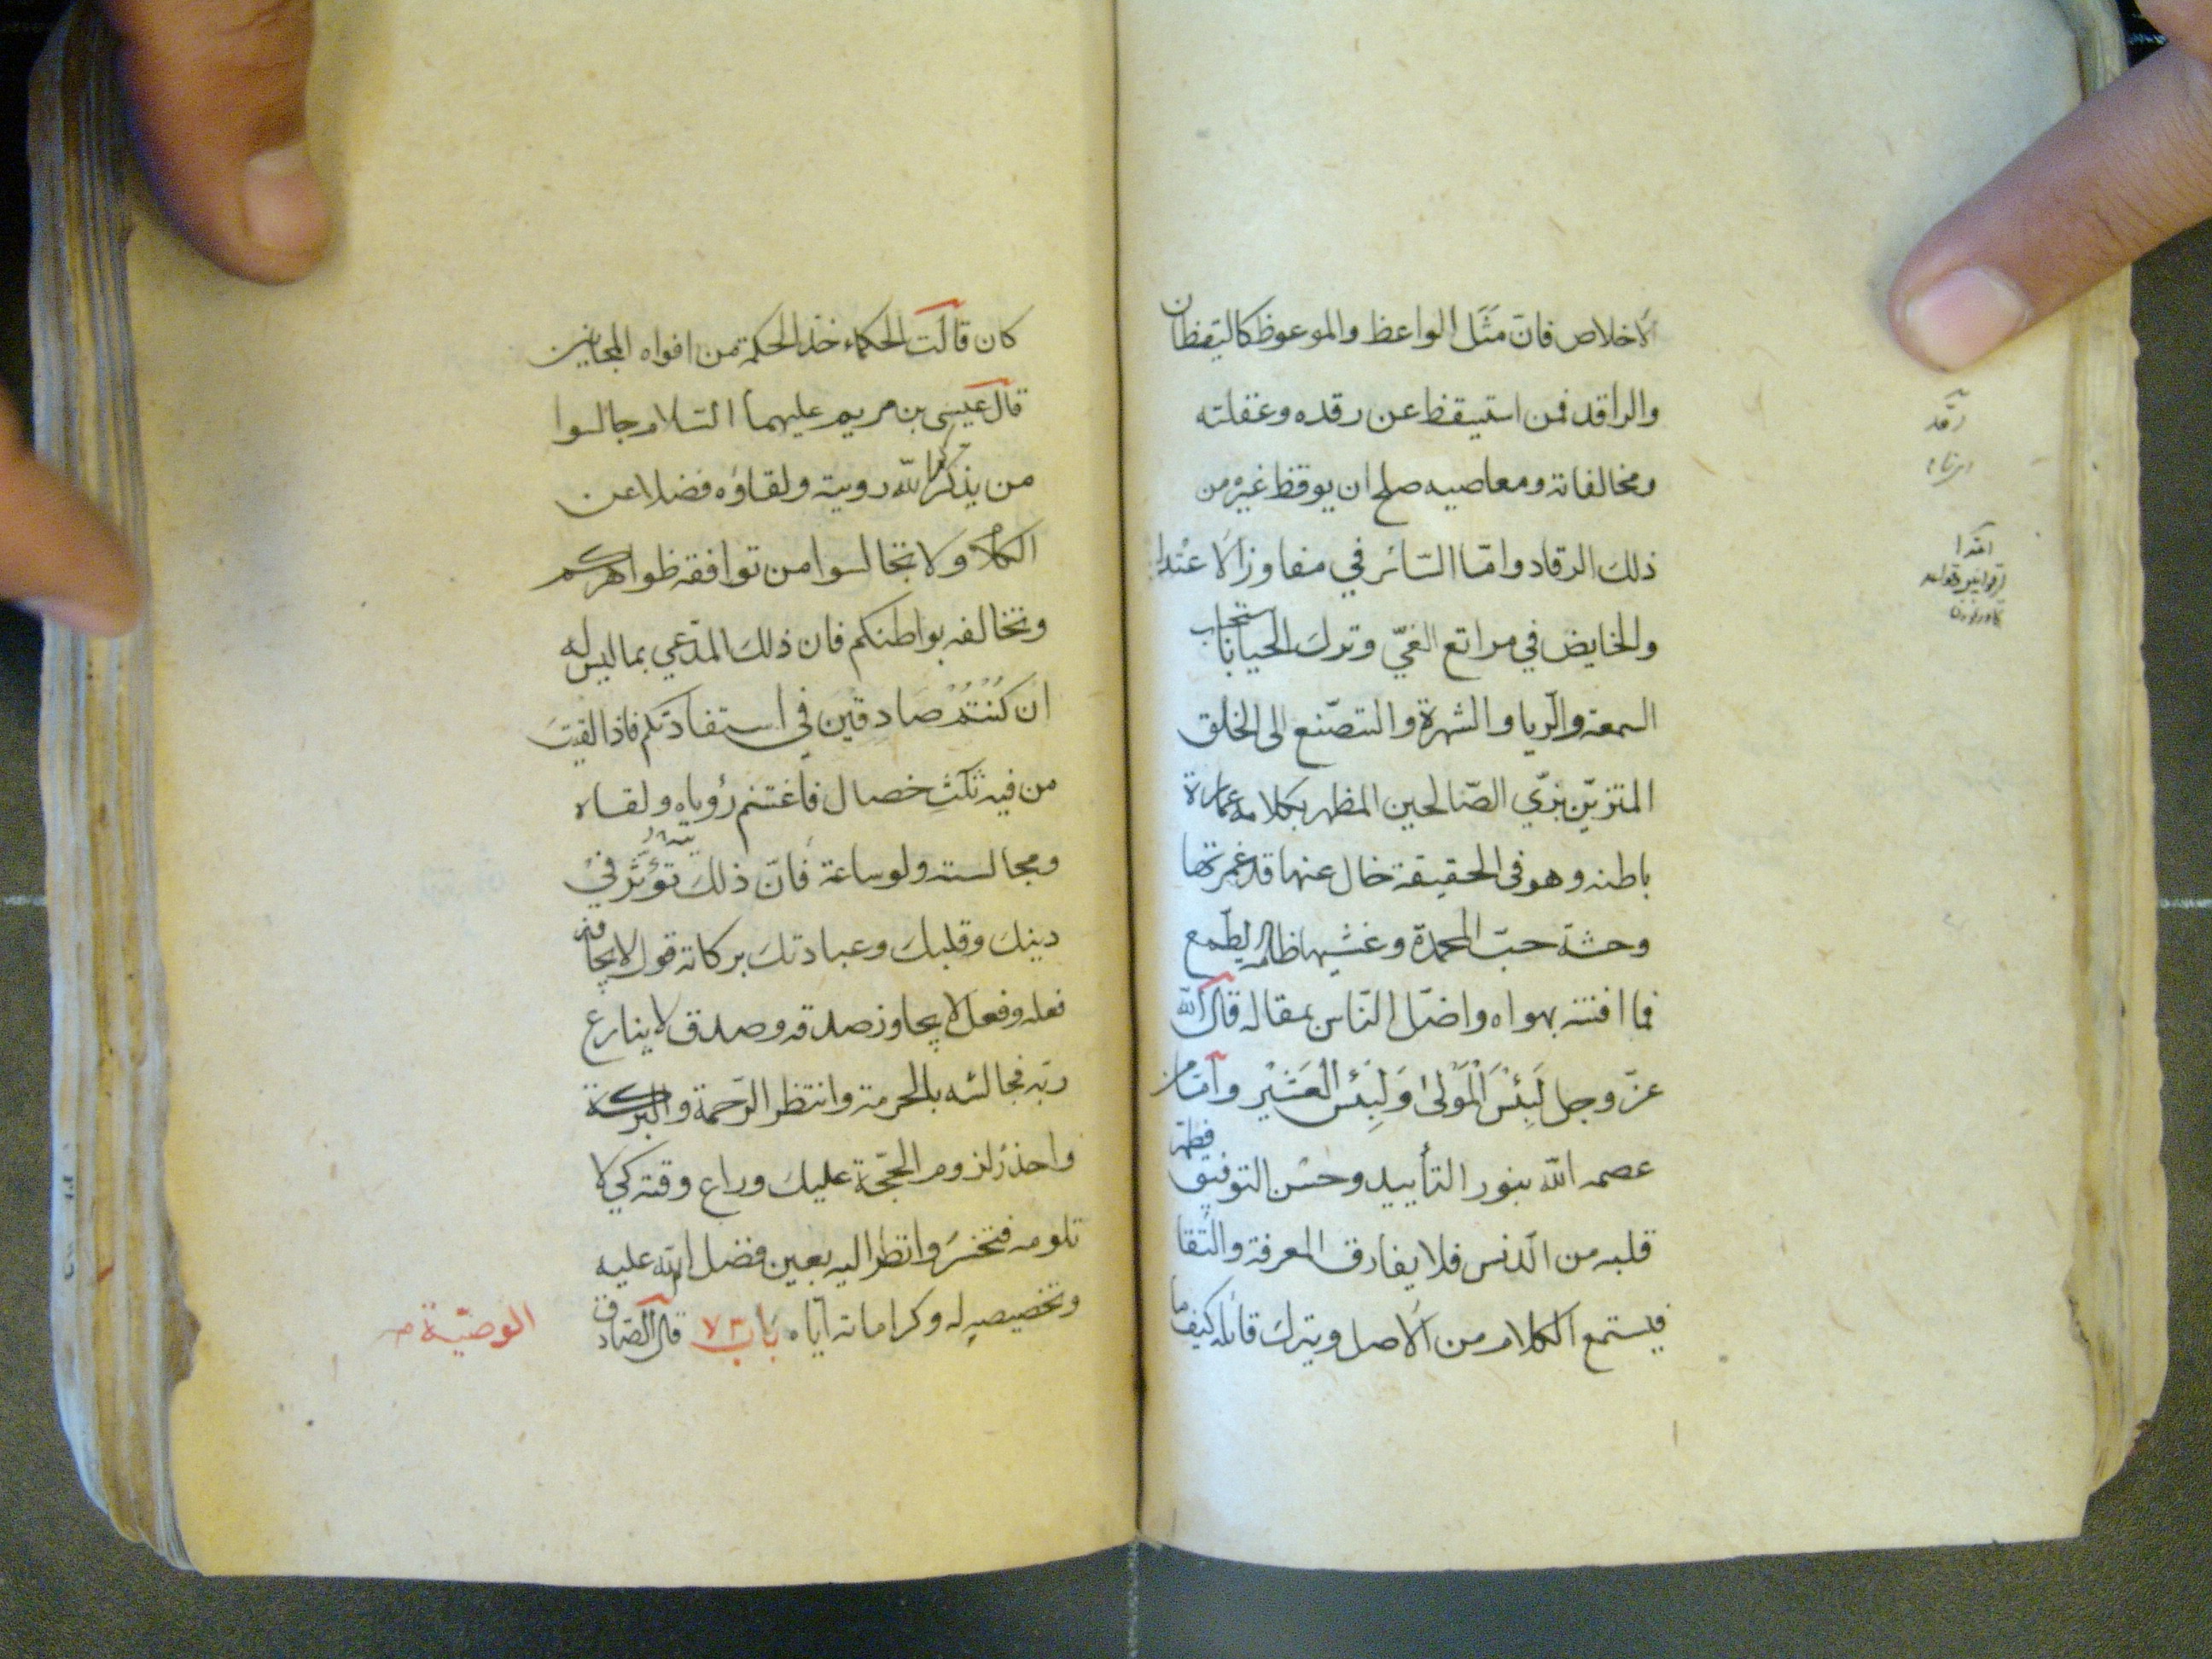 الاخلاص فان مَثَل الواعظ والموعوظ كاليقظان
والراقد فمن استيقظ عن رقده وغفلته
ومخالفاته ومعاصيه صلح ان يوقظ غيره من
ذلك الرقاد وامّا السّائر في مفاوز الاعتدا
والخايض في مراتع الغيّ وترك الحيا باستحباب
السمعة والريا والشهرة والتصنّع الى الخلق
المتزيّن بزيّ الصّالحين المظهر بكلامه عمارة
باطنه وهو في الحقيقة خال عنها قد غمرتها
وحشة حبّ المحمدة وغشيها ظلمة الطمع
فما افتنه بهواه واضلّ النّاس بمقاله قال الله
عزّ وجل لَبِئْسَ الْمَوْلىٰ وَلَبِئْسَ الْعَشِيْر وامّا من
عصمه الله بنور التأييد وحسن التوفيق فطهر
قلبه من الدنس فلا يفارق المعرفة والتّقا
فيستمع الكلام من الاصل ويترك قائله كيف ما
رقد
اعتدا
كان قالت الحكماء خذ الحكمة من افواه المجانين
قال عيسى بن مريم عليهما السّلام جالسوا
من يذكركم الله رويته ولقاؤه فضلا عن
الكلام ولا تجالسوا من توافقه ظواهركم
وتخالفه بواطنكم فان ذلك المدّعي بما ليس له
ان كُنْتُمْ صَادِقين في استفادتكم فاذا لقيتَ
من فيه ثلث خصال فاغتنم رؤياه ولقاه
ومجالسته ولو ساعة فانّ ذلك تؤثر في
دينك وقلبك وعبادتك بركاته قول لا يجاوز
فعله وفعل لا يجاوز صدقه وصدق لا ينازع
ربّه فجالسه بالحرمة وانتظر الرّحمة والبركة
واحذر لزوم الحجّة عليك وراع وقته كي لا
تلومه فتخسر وانظر اليه بعين فضل الله عليه
وتخصيصه له وكراماته ايّاه باب ٧٣ قال الصّادق
الوصيّة